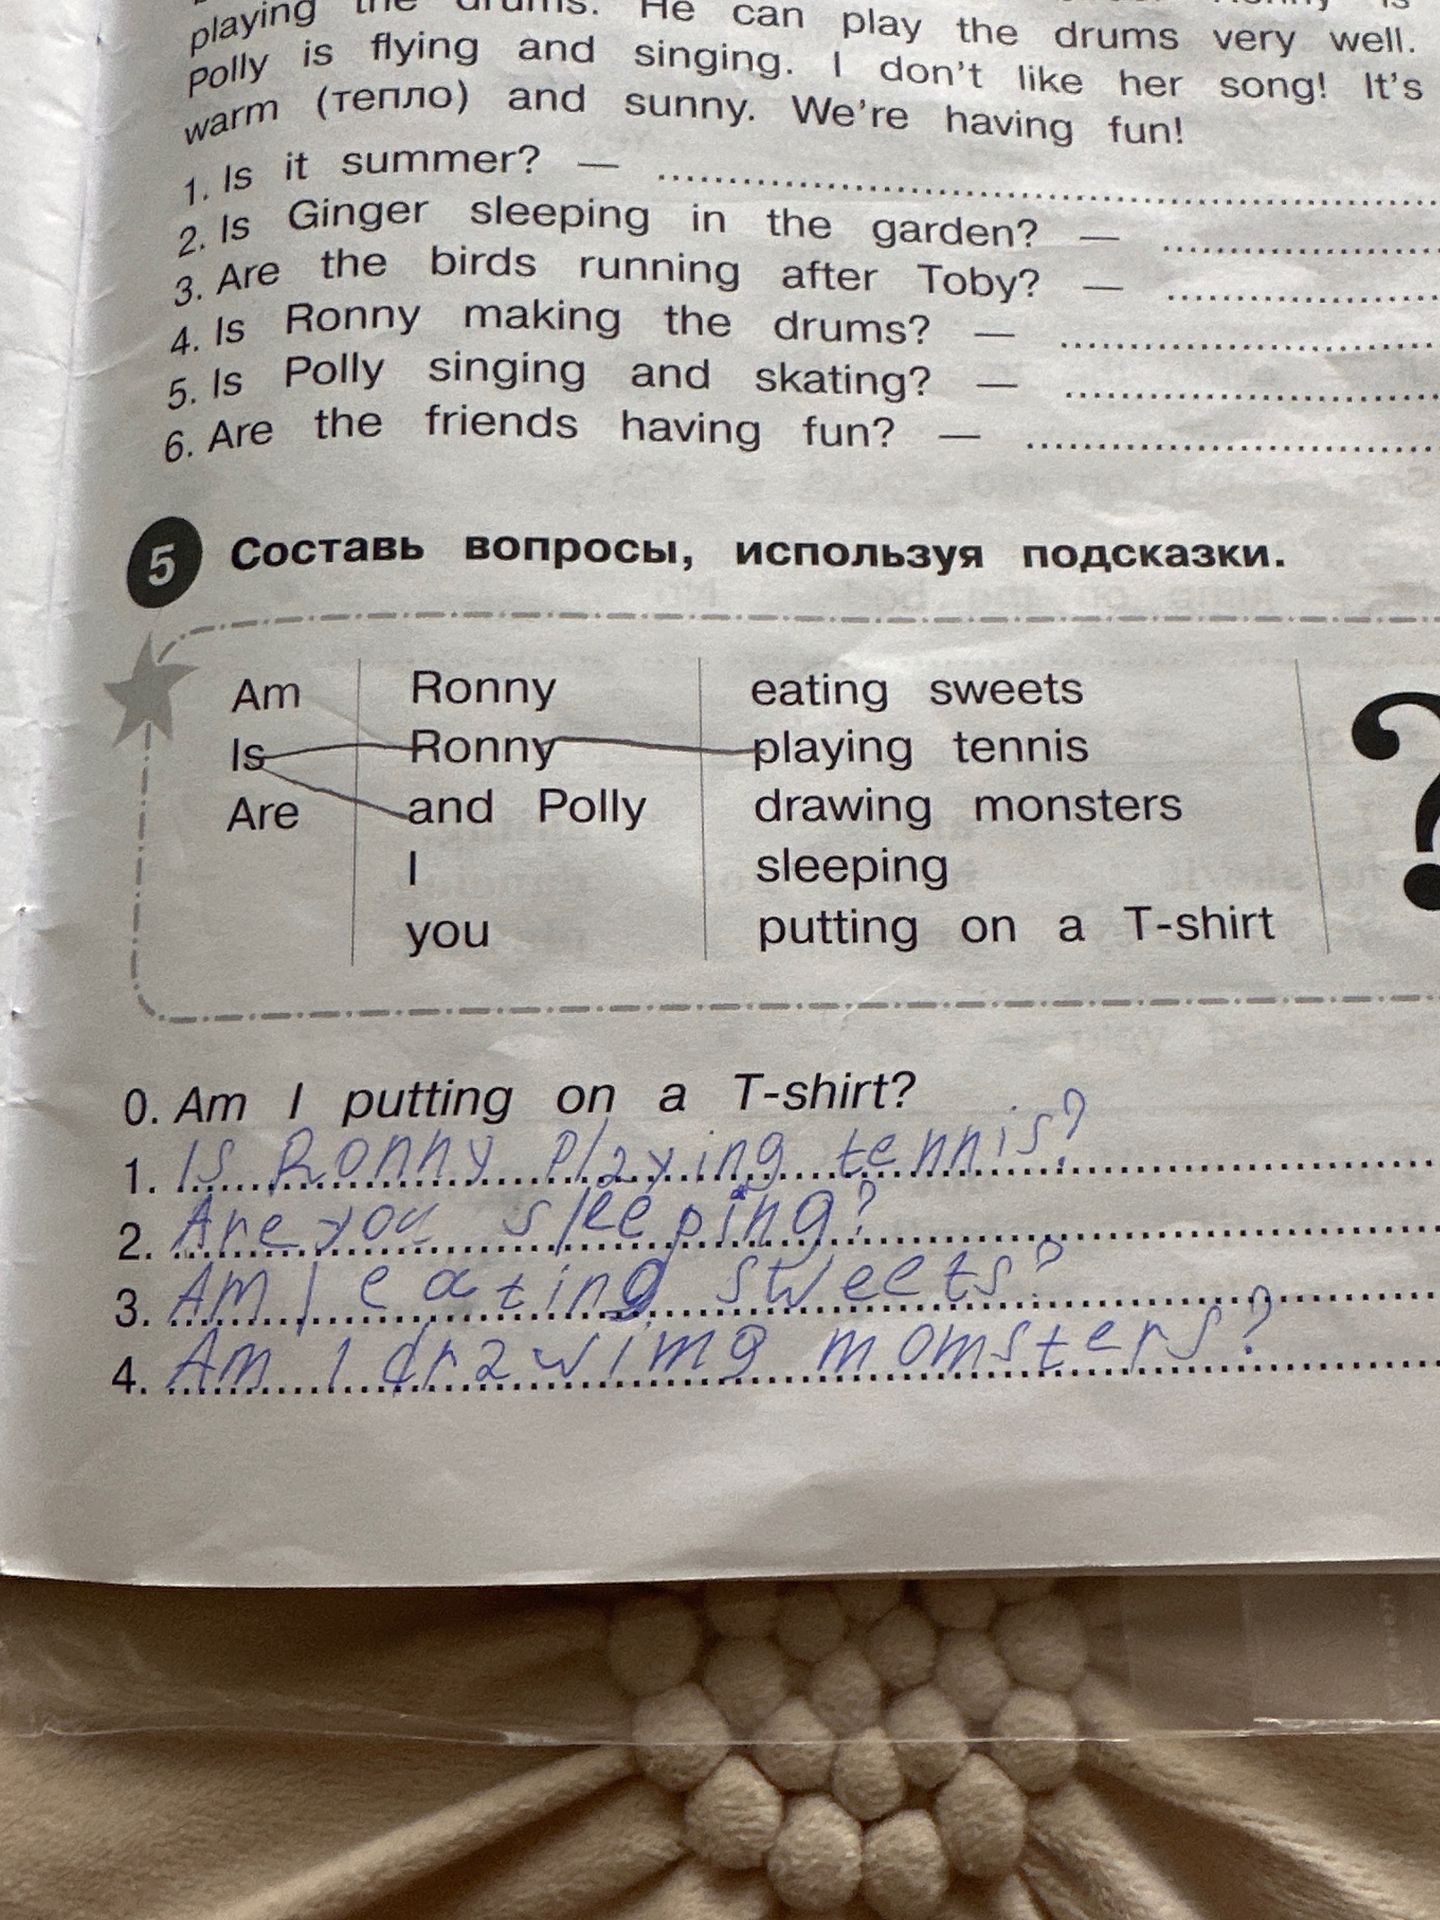 playing the drums. He can play the drums very well.
Polly is flying and singing. I don't like her song! It's
warm (тепло) and sunny. We're having fun!
1. Is it summer? —
2. Is Ginger sleeping in the garden? —
3. Are the birds running after Toby? —
4. Is Ronny making the drums? —
5. Is Polly singing and skating? —
6. Are the friends having fun? —
5 Составь вопросы, используя подсказки.
Am Ronny eating sweets
Is Ronny playing tennis ?
Are and Polly drawing monsters
I sleeping
you putting on a T-shirt
0. Am I putting on a T-shirt?
1. Is Ronny playing tennis?
2. Are you sleeping?
3. Am I eating sweets?
4. Am I drawimg momsters?